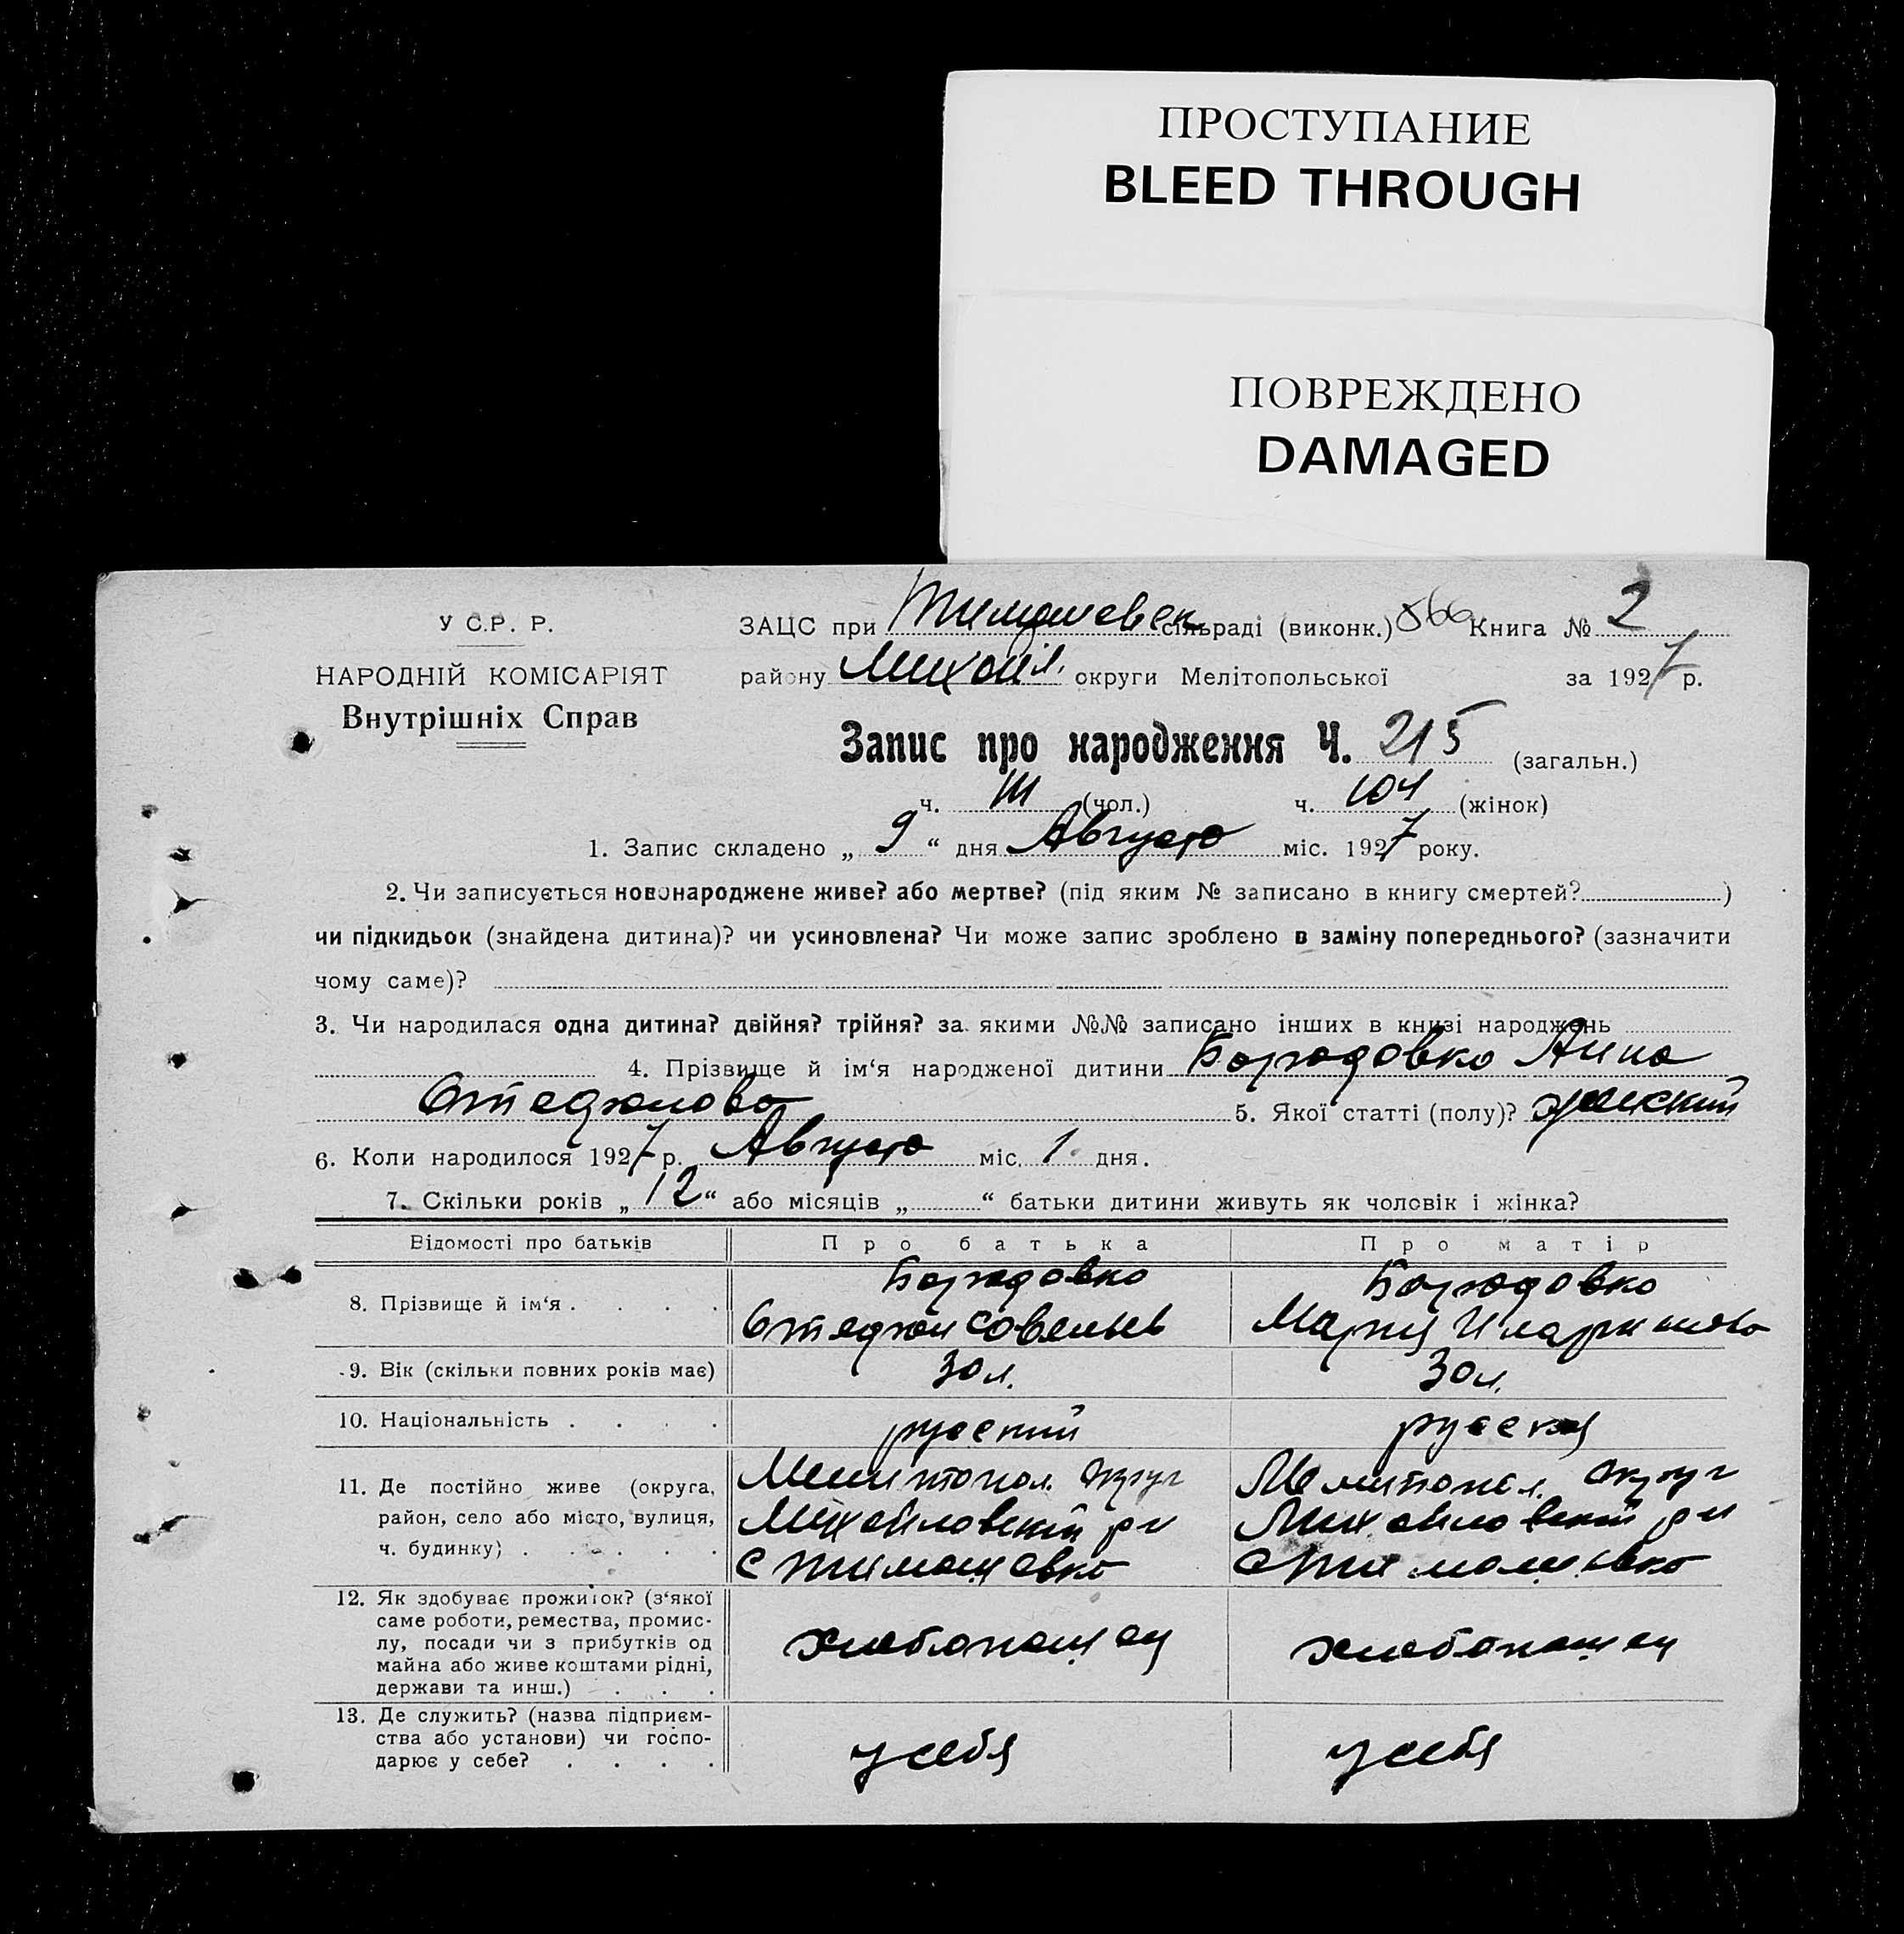 ПРОСТУПАНИЕ
BLEED THROUGH
ПОВРЕЖДЕНО
DAMAGED
У С.Р. Р.
НАРОДНІЙ КОМІСАРІЯТ
Внутрішніх Справ
ЗАЦС при Тимошевск сільраді (виконк.) Книга № 2
району Михайл. округи Мелітопольської за 1927 р.
Запис про народження Ч. 215 (загальн.)
ч. 111 (чол.) ч. 104 (жінок)
1. Запис складено „ 9 “ дня Августа міс. 1927 року.
2. Чи записується новонароджене живе? або мертве? (під яким № записано в книгу смертей? )
чи підкидьок (знайдена дитина)? чи усиновлена? Чи може запис зроблено в заміну попереднього? (зазначити
чому саме)?
3. Чи народилася одна дитина? двійня? трійня? за якими №№ записано інших в книзі народжень
4. Прізвище й ім‘я народженої дитини Бородовко Анна
5. Якої статті (полу)? женский
6. Коли народилося 1927 р. Августа міс. 1 дня.
7. Скільки років „ 12 “ або місяців „ “ батьки дитини живуть як чоловік і жінка?
Відомості про батьків Про батька Про матір
8. Прізвище й ім‘я . . . . Бородовко Бородовко
Савельев Мария
9. Вік (скільки повних років має) 30 л. 30 л.
10. Національність . . . . русский русская
11. Де постійно живе (округа, Мелитопол. округ Мелитопол. округ
район, село або місто, вулиця, Михайловский р н Михайловский р н
ч. будинку) . . . . . с Тимошевка с Тимошевка
12. Як здобуває прожиток? (з‘якої
саме роботи, ремества, промис-
лу, посади чи з прибутків од
майна або живе коштами рідні,
держави та инш.) . . . хлебопашец хлебопашец
13. Де служить? (назва підприєм-
ства або установи) чи госпо-
дарює у себе? . . . . у себя у себя